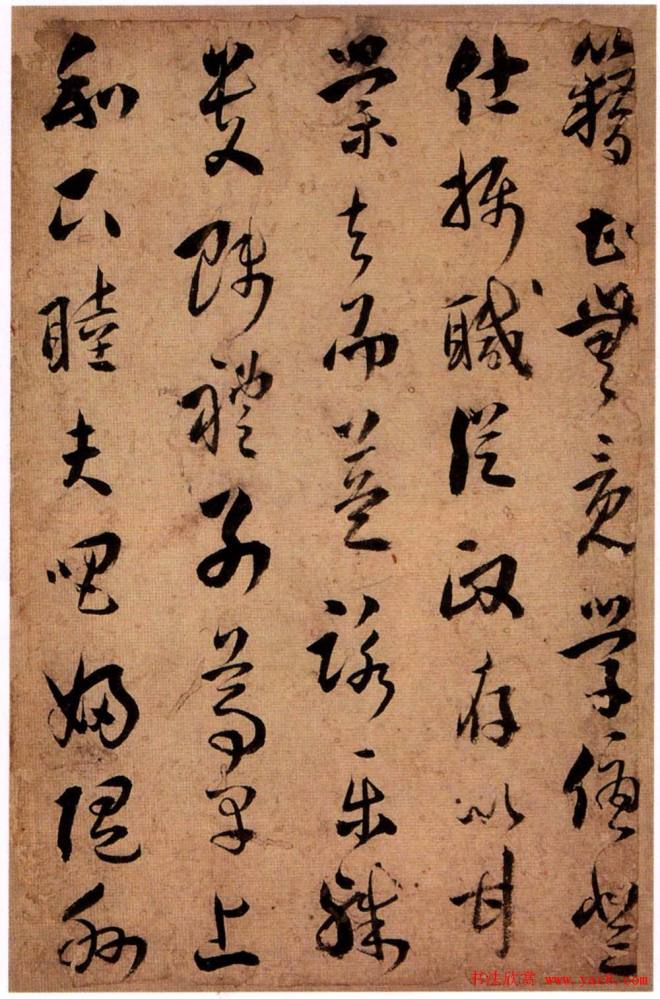 籍甚無竟學優登
仕攝職從政存以甘
棠去而益詠樂殊
貴賤禮別尊卑上
和下睦夫唱婦隨外
书法欣赏 www.yac8.com